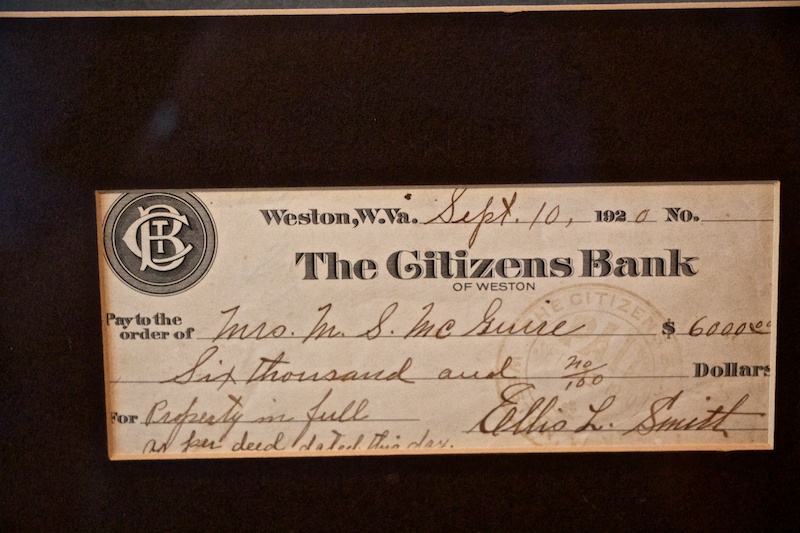 CTB
Weston, W.Va. Sept. 10, 1920 No.
The Citizens Bank
OF WESTON
Pay to the
order of Mrs. M. S. McGuire $ 6000.00
Six thousand and no/100 Dollars
For Property in full Ellis L. Smith
as per deed dated this day.
THE CITIZENS